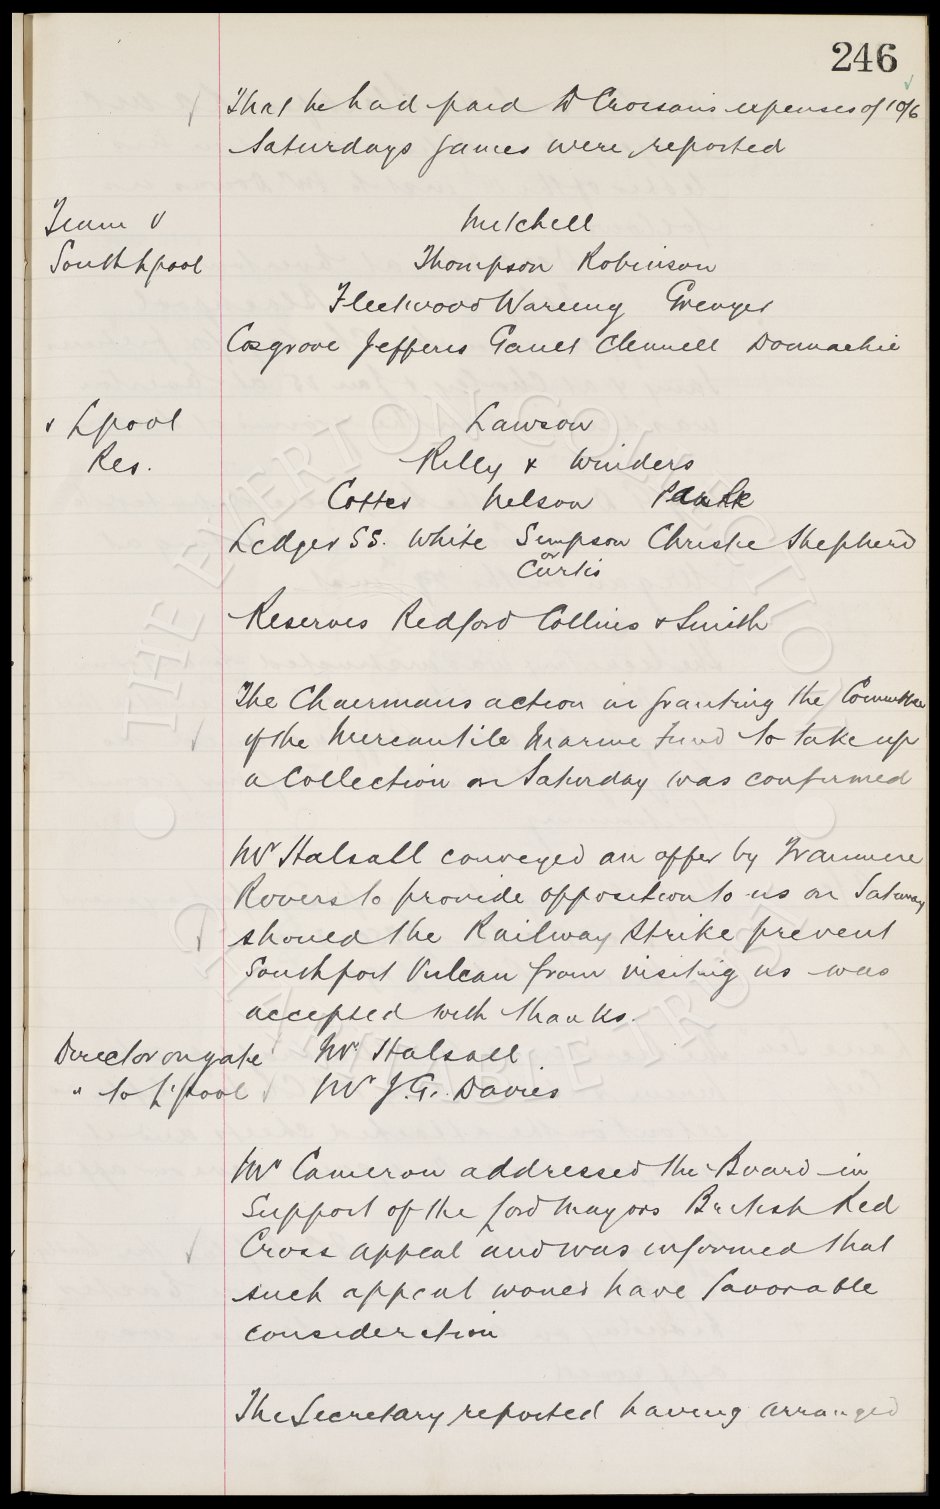 246
That he had paid Dr Crossans expenses of 10/6
Saturdays games were reported
Team v
Southpool
Mitchell
Thompson Robinson
Fleetwood Wareing Grenyer
Cosgrove Jefferis Gault Clennell Donnachie
v Lpool
Res.
Lawson
Kelly & Winders
Cotter Nelson
Ledger SS. White Simpson Christie Shepherd
or
Curtis
Reserves Redford Collins & Smith
The Chairmans action in granting the Committee
of the Mercantile Marine Fund to take up
a Collection on Saturday was confirmed
Mr Halsall conveyed an offer by Tranmere
Rovers to provide opposition to us on Saturday
should the Railway Strike prevent
Southport Vulcan from visiting us was
accepted with thanks.
Director on gate Mr Halsall
" to L'pool Mr J. G. Davies
Mr Cameron addressed the Board in
Support of the Lord Mayors British Red
Cross appeal and was informed that
such appeal would have favorable
consideration
The Secretary reported having arranged
THE EVERTON COLLECTION
CHARITABLE TRUST